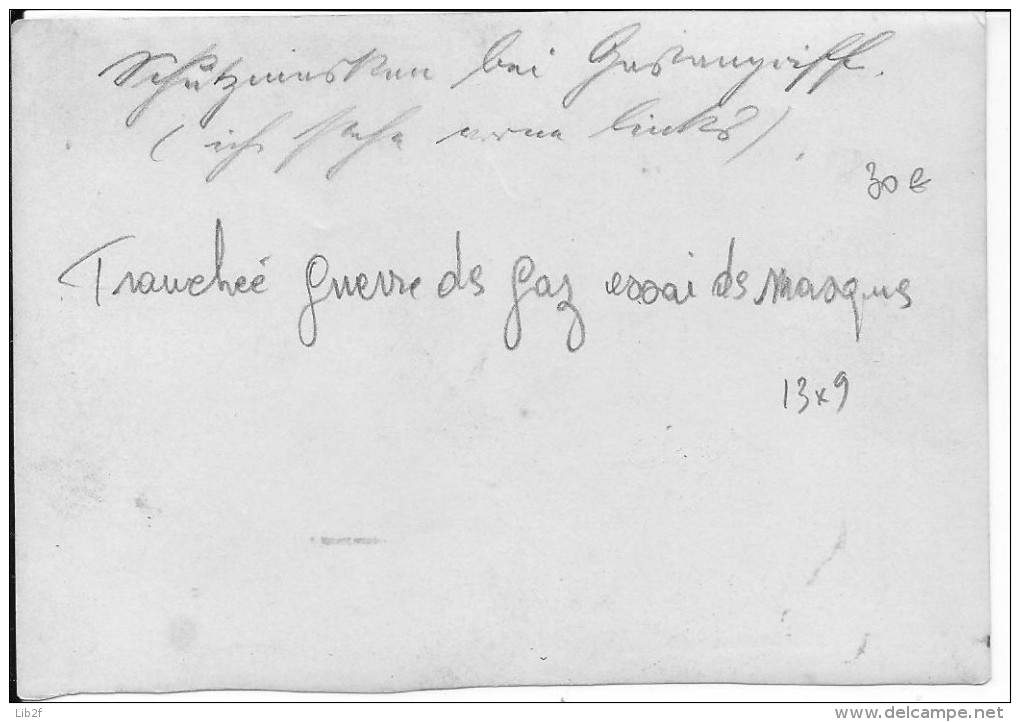 Schutzmasken bei Gasangriff.
(ich stehe vorne links)
30 €
Tranchée guerre des gaz essai des masques
13x9
Lib2f
www.delcampe.net